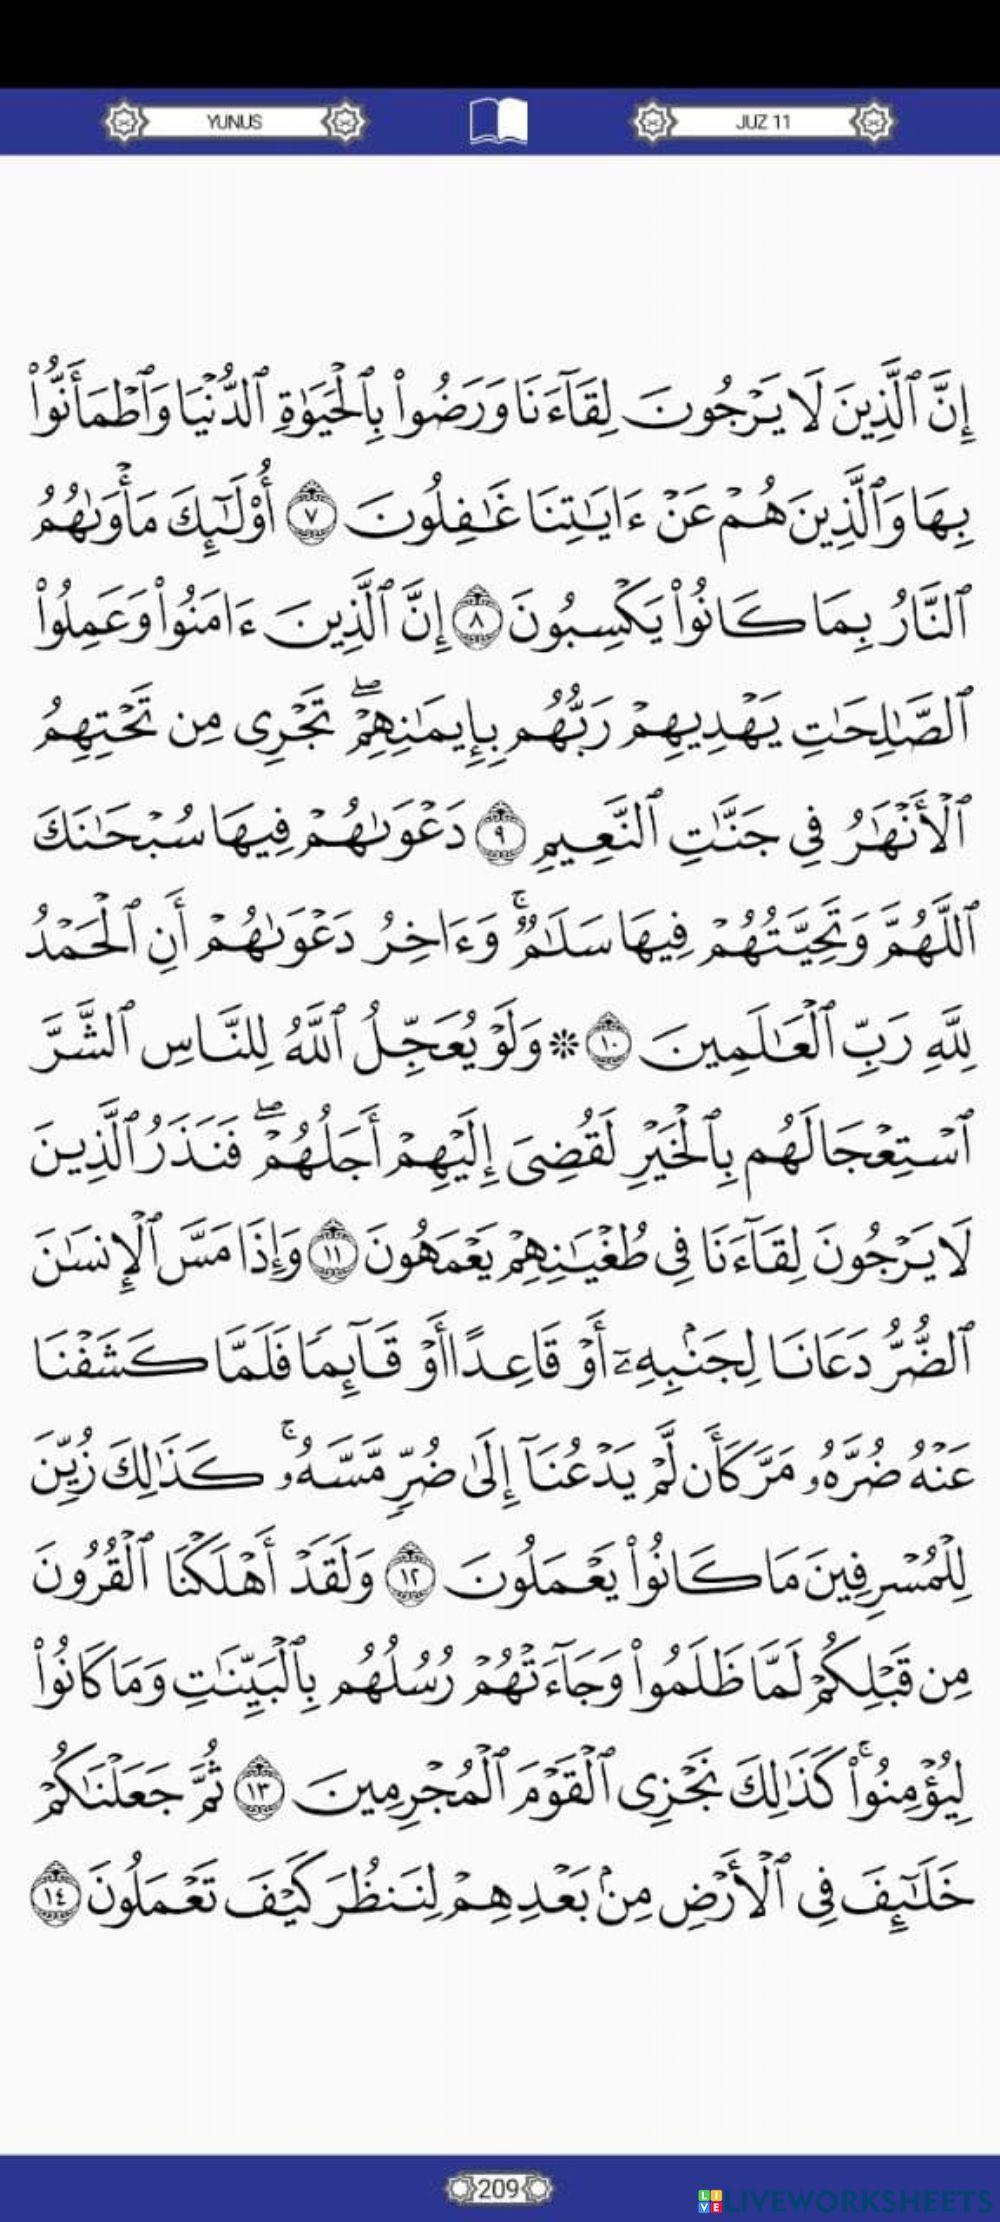 YUNUS
JUZ 11
إِنَّ ٱلَّذِينَ لَا يَرْجُونَ لِقَآءَنَا وَرَضُوا۟ بِٱلْحَيَوٰةِ ٱلدُّنْيَا وَٱطْمَأَنُّوا۟
بِهَا وَٱلَّذِينَ هُمْ عَنْ ءَايَٰتِنَا غَٰفِلُونَ ٧ أُو۟لَٰٓئِكَ مَأْوَىٰهُمُ
ٱلنَّارُ بِمَا كَانُوا۟ يَكْسِبُونَ ٨ إِنَّ ٱلَّذِينَ ءَامَنُوا۟ وَعَمِلُوا۟
ٱلصَّٰلِحَٰتِ يَهْدِيهِمْ رَبُّهُم بِإِيمَٰنِهِمْ ۖ تَجْرِى مِن تَحْتِهِمُ
ٱلْأَنْهَٰرُ فِى جَنَّٰتِ ٱلنَّعِيمِ ٩ دَعْوَىٰهُمْ فِيهَا سُبْحَٰنَكَ
ٱللَّهُمَّ وَتَحِيَّتُهُمْ فِيهَا سَلَٰمٌ ۚ وَءَاخِرُ دَعْوَىٰهُمْ أَنِ ٱلْحَمْدُ
لِلَّهِ رَبِّ ٱلْعَٰلَمِينَ ١٠ ۞ وَلَوْ يُعَجِّلُ ٱللَّهُ لِلنَّاسِ ٱلشَّرَّ
ٱسْتِعْجَالَهُم بِٱلْخَيْرِ لَقُضِىَ إِلَيْهِمْ أَجَلُهُمْ ۖ فَنَذَرُ ٱلَّذِينَ
لَا يَرْجُونَ لِقَآءَنَا فِى طُغْيَٰنِهِمْ يَعْمَهُونَ ١١ وَإِذَا مَسَّ ٱلْإِنسَٰنَ
ٱلضُّرُّ دَعَانَا لِجَنۢبِهِۦٓ أَوْ قَاعِدًا أَوْ قَآئِمًا فَلَمَّا كَشَفْنَا
عَنْهُ ضُرَّهُۥ مَرَّ كَأَن لَّمْ يَدْعُنَآ إِلَىٰ ضُرٍّ مَّسَّهُۥ ۚ كَذَٰلِكَ زُيِّنَ
لِلْمُسْرِفِينَ مَا كَانُوا۟ يَعْمَلُونَ ١٢ وَلَقَدْ أَهْلَكْنَا ٱلْقُرُونَ
مِن قَبْلِكُمْ لَمَّا ظَلَمُوا۟ وَجَآءَتْهُمْ رُسُلُهُم بِٱلْبَيِّنَٰتِ وَمَا كَانُوا۟
لِيُؤْمِنُوا۟ ۚ كَذَٰلِكَ نَجْزِى ٱلْقَوْمَ ٱلْمُجْرِمِينَ ١٣ ثُمَّ جَعَلْنَٰكُمْ
خَلَٰٓئِفَ فِى ٱلْأَرْضِ مِنۢ بَعْدِهِمْ لِنَنظُرَ كَيْفَ تَعْمَلُونَ ١٤
209
LIVEWORKSHEETS